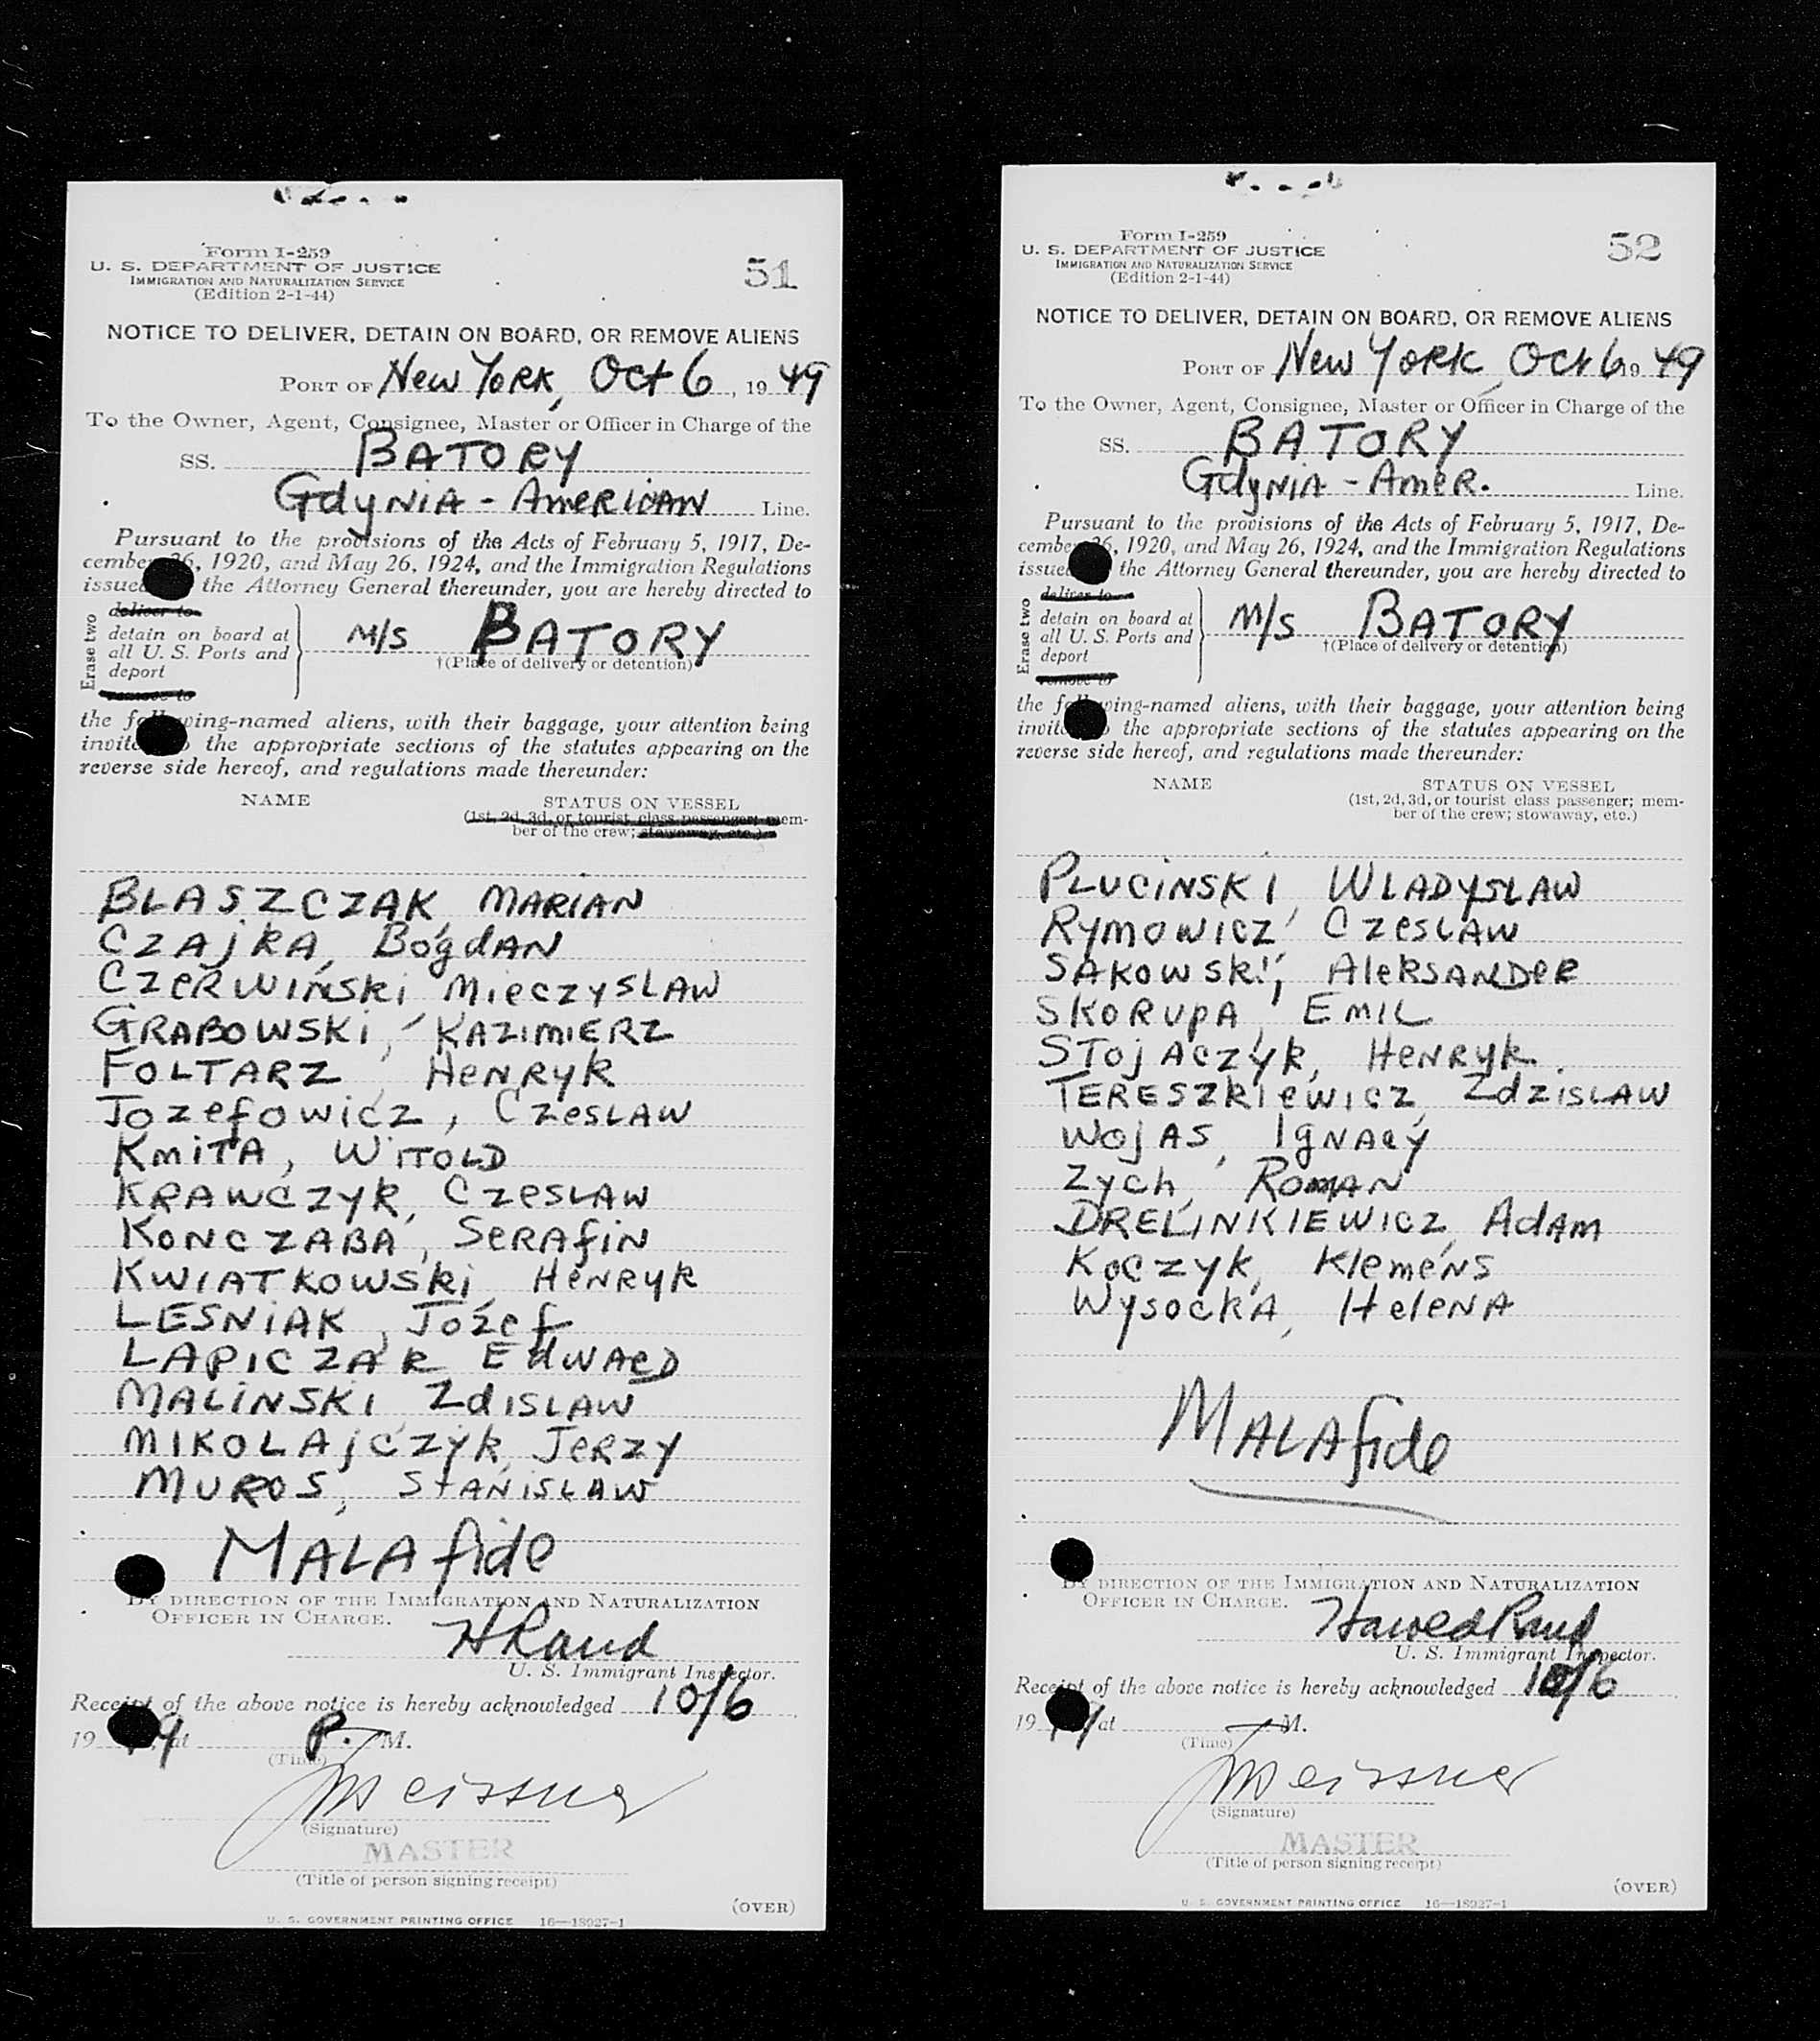 Form I-259
U. S. DEPARTMENT OF JUSTICE
IMMIGRATION AND NATURALIZATION SERVICE
(Edition 2-1-44)
51
NOTICE TO DELIVER, DETAIN ON BOARD, OR REMOVE ALIENS
PORT OF New York, Oct 6, 1949
To the Owner, Agent, Consignee, Master or Officer in Charge of the
SS. BATORY
Gdynia - American Line.
Pursuant to the provisions of the Acts of February 5, 1917, De-
cember 26, 1920, and May 26, 1924, and the Immigration Regulations
issued the Attorney General thereunder, you are hereby directed to
Erase two
deliver to
detain on board at
all U. S. Ports and
deport
remove to
M/S BATORY
†(Place of delivery or detention)
the following-named aliens, with their baggage, your attention being
invited the appropriate sections of the statutes appearing on the
reverse side hereof, and regulations made thereunder:
NAME STATUS ON VESSEL
(1st, 2d, 3d, or tourist class passenger; mem-
ber of the crew; stowaway, etc.)
BLASZCZAK, MARIAN
CZAJKA, Bogdan
CZERWINSKI, Mieczyslaw
GRABOWSKI, KAZIMIERZ
FOLTARZ, HENRYK
Jozefowicz, Czeslaw
KMITA, WITOLD
KRAWCZYK, CZESLAW
KONCZABA, SERAFIN
KWIATKOWSKI, HENRYK
LESNIAK, Józef
LAPICZAK EDWARD
MALINSKI, ZDISLAW
MIKOLAJCZYK, JERZY
MUROS, STANISLAW
MALA fide
BY DIRECTION OF THE IMMIGRATION AND NATURALIZATION
OFFICER IN CHARGE.
H Rand
U. S. Immigrant Inspector.
Receipt of the above notice is hereby acknowledged 10/6
1949, at P. M.
(Time)
Meissner
(Signature)
MASTER
(Title of person signing receipt)
(OVER)
U. S. GOVERNMENT PRINTING OFFICE 16—18927-1
Form I-259
U. S. DEPARTMENT OF JUSTICE
IMMIGRATION AND NATURALIZATION SERVICE
(Edition 2-1-44)
52
NOTICE TO DELIVER, DETAIN ON BOARD, OR REMOVE ALIENS
PORT OF New York, Oct 6 1949
To the Owner, Agent, Consignee, Master or Officer in Charge of the
SS. BATORY
Gdynia - Amer. Line.
Pursuant to the provisions of the Acts of February 5, 1917, De-
cember 26, 1920, and May 26, 1924, and the Immigration Regulations
issued the Attorney General thereunder, you are hereby directed to
Erase two
deliver to
detain on board at
all U. S. Ports and
deport
remove to
M/S BATORY
†(Place of delivery or detention)
the following-named aliens, with their baggage, your attention being
invited the appropriate sections of the statutes appearing on the
reverse side hereof, and regulations made thereunder:
NAME STATUS ON VESSEL
(1st, 2d, 3d, or tourist class passenger; mem-
ber of the crew; stowaway, etc.)
PLUCINSKI, WLADYSLAW
RYMOWICZ, CZESLAW
SAKOWSKI, ALEKSANDER
SKORUPA, EMIL
STOJACZYK, HENRYK.
TERESZKIEWICZ, ZDZISLAW
WOJAS, IGNACY
Zych, ROMAN
DRELINKIEWICZ, ADAM
Koczyk, Klemens
Wysocka, Helena
MALAfide
BY DIRECTION OF THE IMMIGRATION AND NATURALIZATION
OFFICER IN CHARGE.
Harold Rand
U. S. Immigrant Inspector.
Receipt of the above notice is hereby acknowledged 10/6
1949, at M.
(Time)
Meissner
(Signature)
MASTER
(Title of person signing receipt)
(OVER)
U. S. GOVERNMENT PRINTING OFFICE 16—18927-1